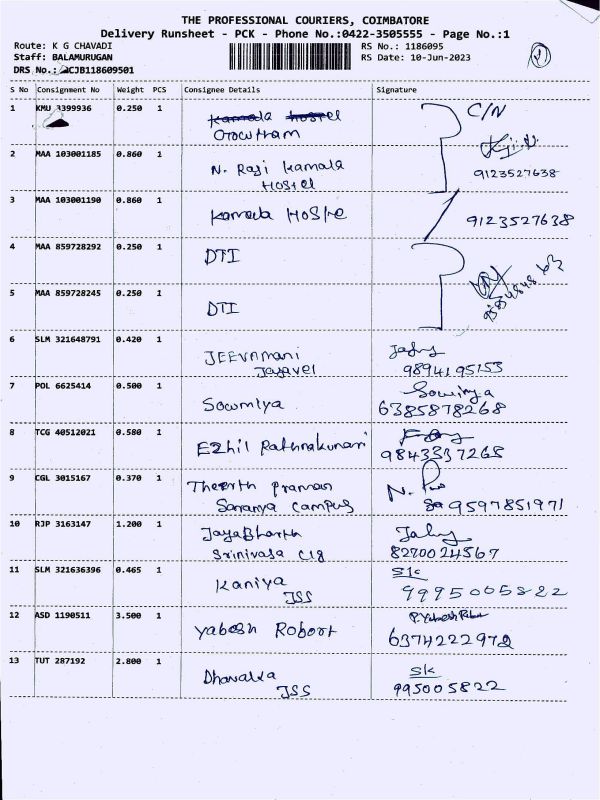 THE PROFESSIONAL COURIERS, COIMBATORE
Delivery Runsheet - PCK - Phone No.:0422-3505555 - Page No.:1
Route: K G CHAVADI
Staff: BALAMURUGAN
DRS No.: CJB118609501
RS No.: 1186095
RS Date: 10-Jun-2023
S No Consignment No Weight PCS Consignee Details Signature
1 KMU 3399936 0.250 1 Kamala Hostel C/N
Otocutham
2 MAA 103001185 0.860 1 N. Raji Kamala
Hostel 9123527638
3 MAA 103001190 0.860 1 Kamala Hoste 9123527638
4 MAA 859728292 0.250 1 DTI
5 MAA 859728245 0.250 1 DTI
6 SLM 321648791 0.420 1 JEEVAMANI
Jayavel 9894195153
7 POL 6625414 0.500 1 Sowmiya Sowmiya
6385878268
8 TCG 40512021 0.580 1 Ezhil Rathnakumari
9843337268
9 CGL 3015167 0.370 1 Theerth praman
Saranya Campus 9597851971
10 RJP 3163147 1.200 1 JayaBharth
Srinivasa C1g 8270024567
11 SLM 321636396 0.465 1 Kaniya
JSS 9995005822
12 ASD 1190511 3.500 1 Yabesh Robort
6374222972
13 TUT 287192 2.800 1 Dhavalka SK
JSS 995005822